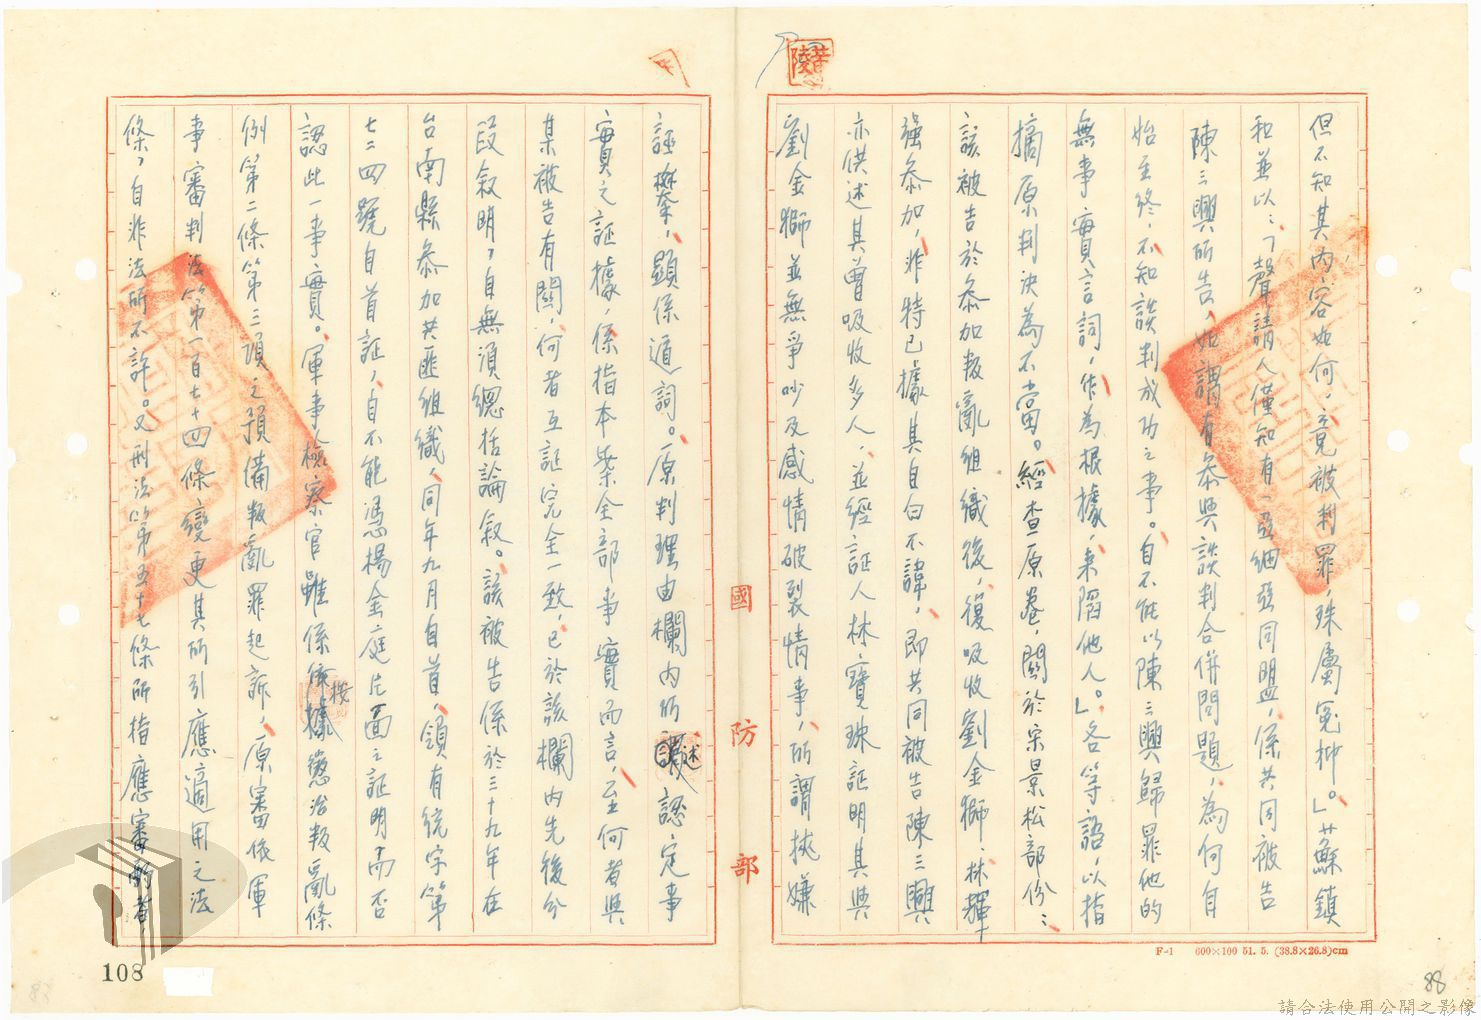 但不知其內容如何，竟被判罪，殊屬冤抑。」蘇鎮
和並以：「聲請人僅知有一亞細亞同盟，係共同被告
陳三興所告，如謂有參與談判合併問題，為何自
始至終，不知談判成功之事。自不能以陳三興歸罪他的
無事實言詞，作為根據，來陷他人。」各等語，以指
摘原判決為不當。經查原卷，關於宋景松部份：
該被告於參加叛亂組織後，復吸收劉金獅、林輝
強參加，非特已據其自白不諱，即共同被告陳三興
亦供述其曾吸收多人，並經証人林寶珠証明其與
劉金獅並無爭吵及感情破裂情事，所謂挾嫌
誣攀，顯係遁詞。原判理由欄內所述認定事
實之証據，係指本案全部事實而言，至何者與
某被告有關，何者互証完全一致，已於該欄內先後分
段敘明，自無須總括論敘。該被告係於三十九年在
台南縣參加共匪組織，同年九月自首，領有統字第
七二四號自首証，自不能憑楊金庭片面之証明而否
認此一事實。軍事檢察官雖係按據懲治叛亂條
例第二條第三項之預備叛亂罪起訴，原審依軍
事審判法第一百七十四條變更其所引應適用之法
條，自非法所不許。又刑法第五十七條所指應審酌者，
國防部
F-1 600×100 51. 5. (38.8×26.8)cm
108
88
88
請合法使用公開之影像